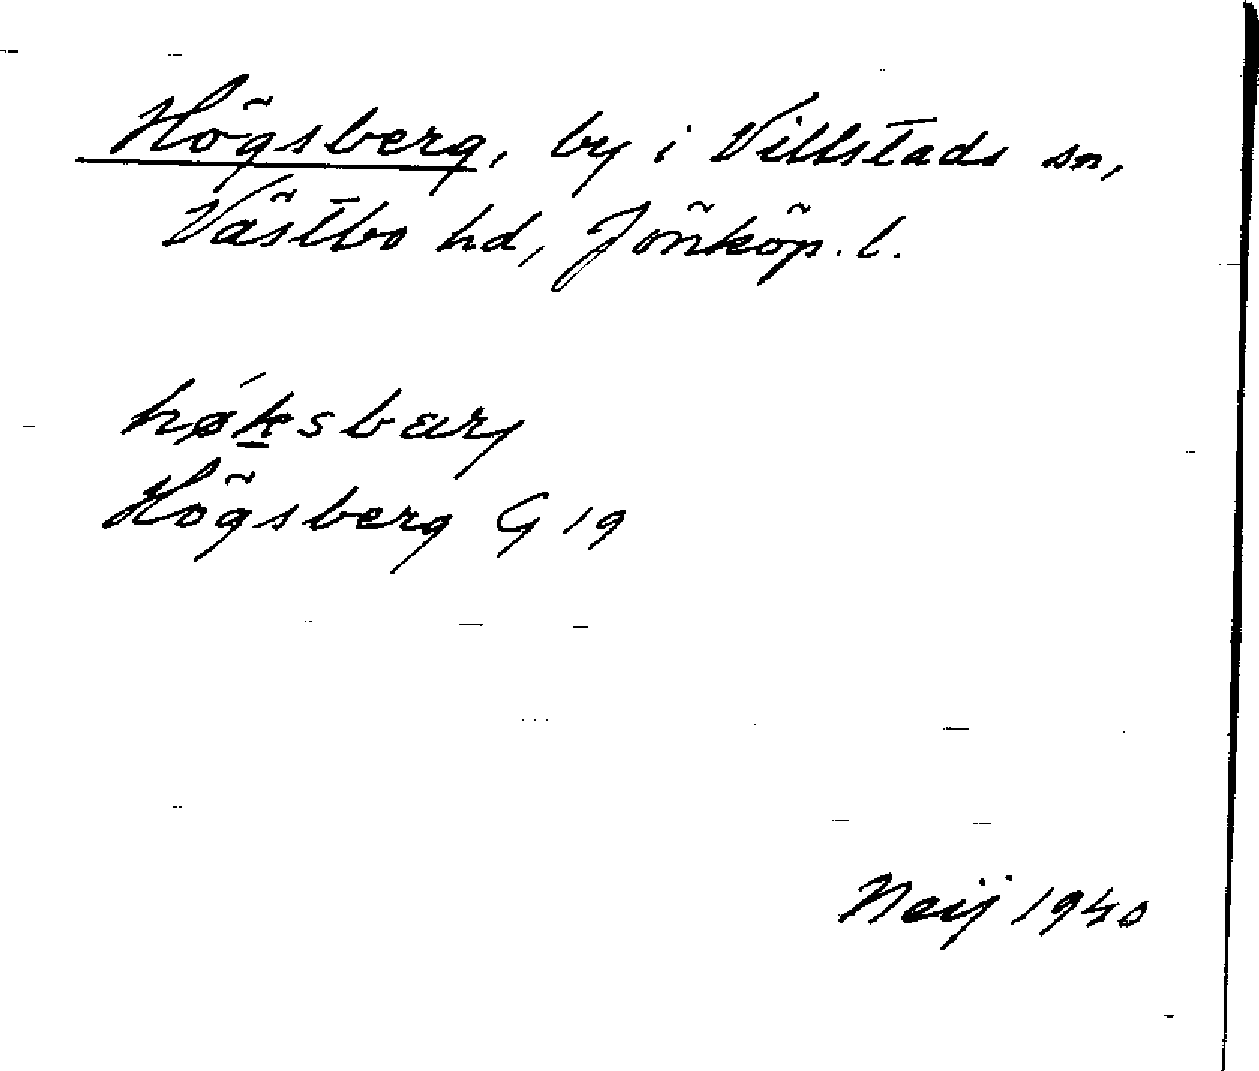 Högsberg, by i Villstads sn,
Västbo hd, Jönköp. l.
hǿksbærj
Högsberg G 19
Neij 1940